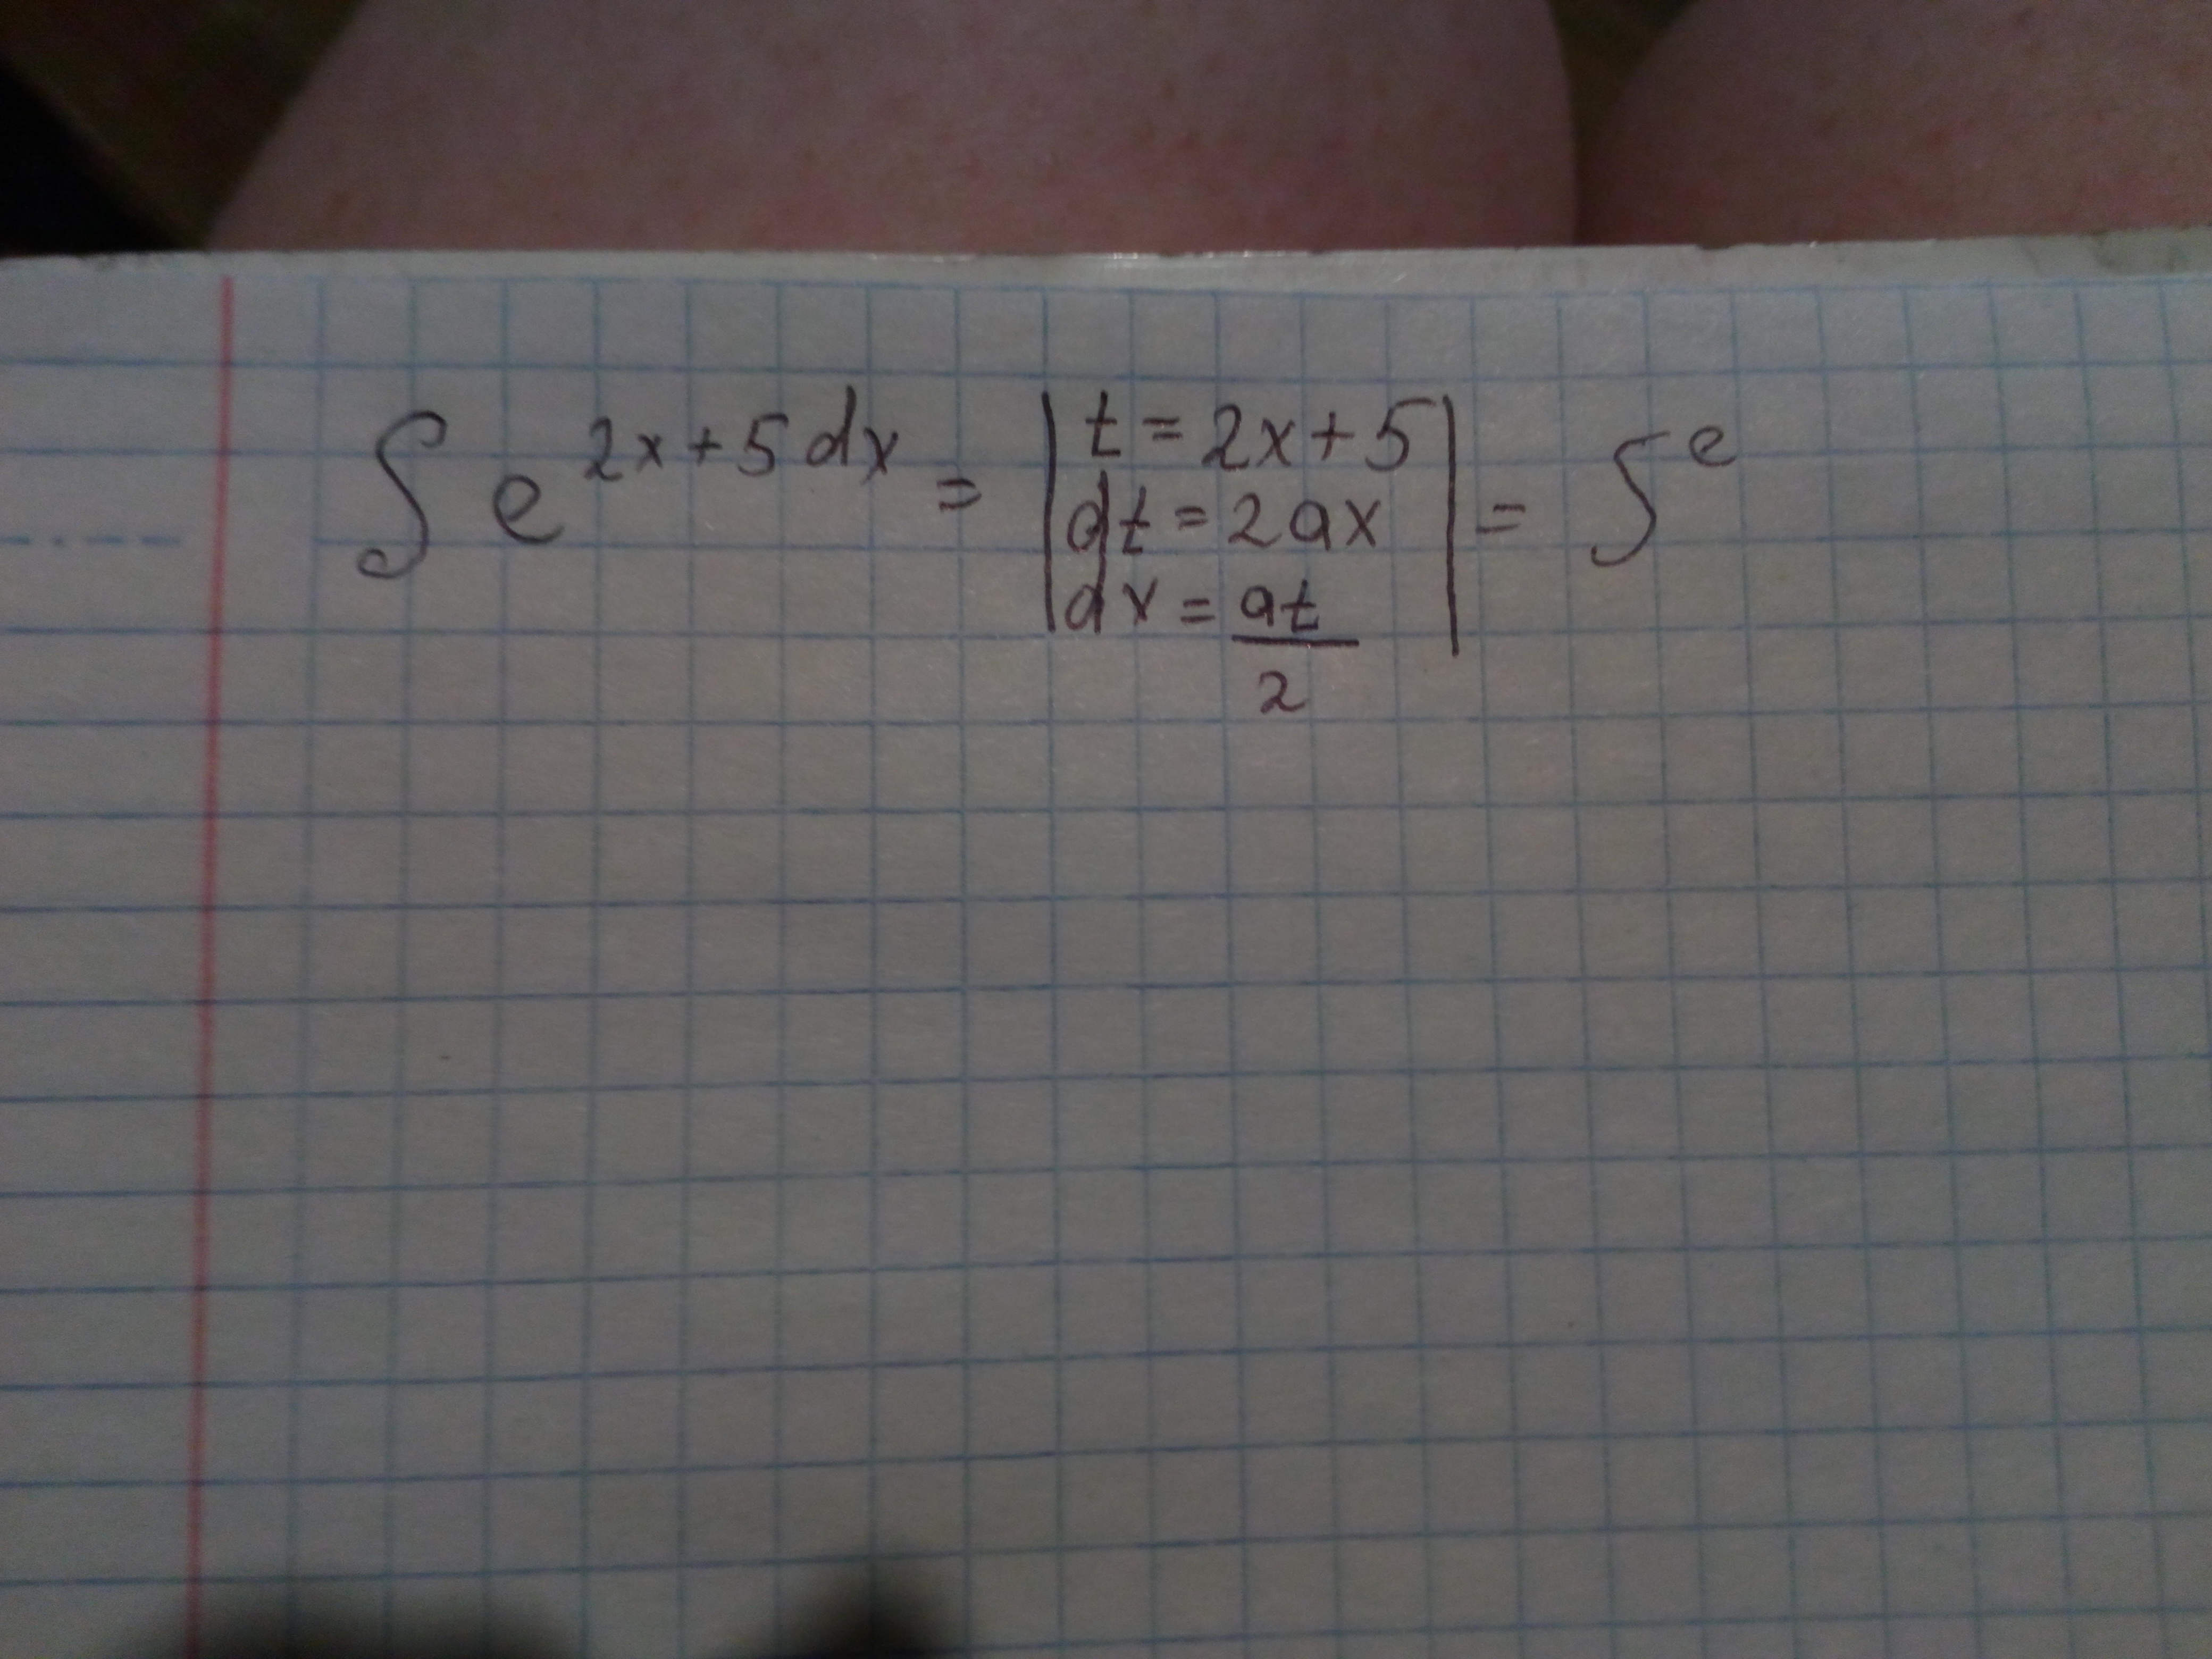 ∫ e^{2x+5 dx} = | t = 2x+5 | = ∫ e
dt = 2ax
dx = at/2